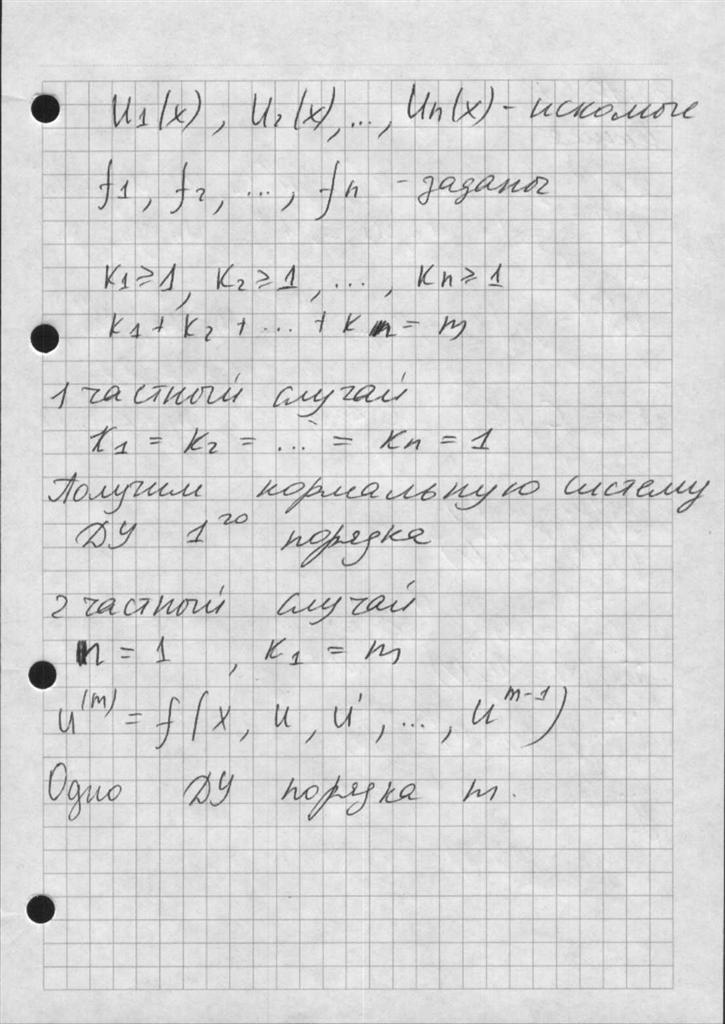 u₁(x), u₂(x), ..., uₙ(x) - искомые
f₁, f₂, ..., fₙ - заданы
k₁ ≥ 1, k₂ ≥ 1, ..., kₙ ≥ 1
k₁ + k₂ + ... + kₙ = m
1 частный случай
k₁ = k₂ = ... = kₙ = 1
Получим нормальную систему
ДУ 1го порядка
2 частный случай
n = 1, k₁ = m
u⁽ᵐ⁾ = f(x, u, u', ..., uᵐ⁻¹)
Одно ДУ порядка m.